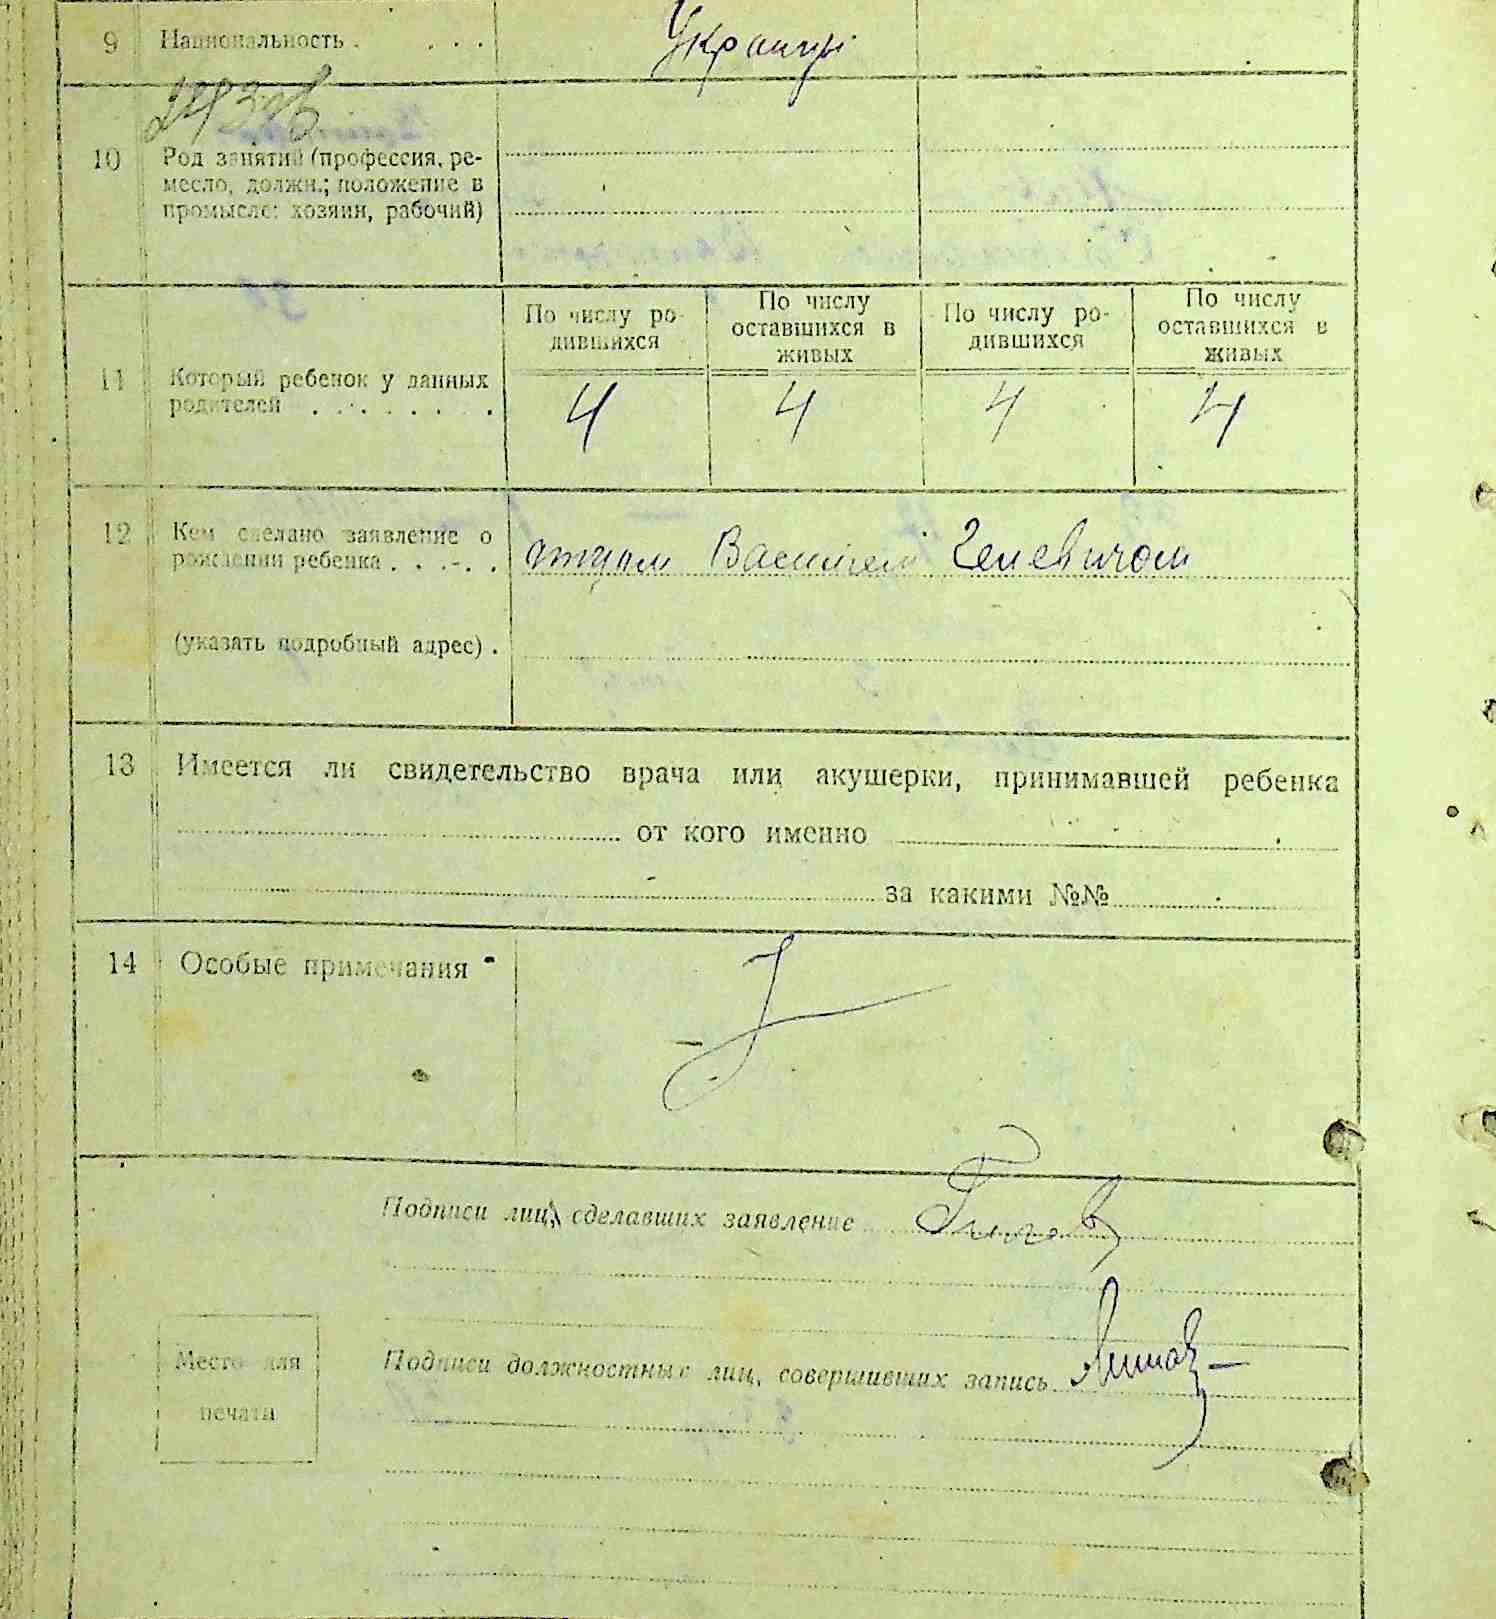 9 Национальность . . . . Украинцы
10 Род занятий (профессия, ре-
месло, должн.; положение в
промысле: хозяин, рабочий)
По числу ро-
дившихся
По числу
оставшихся в
живых
По числу ро-
дившихся
По числу
оставшихся в
живых
11 Который ребенок у данных
родителей . . . . . . . 4 4 4 4
12 Кем сделано заявление о
рождении ребенка . . . . . отцом Василием
(указать подробный адрес) .
13 Имеется ли свидетельство врача или акушерки, принимавшей ребенка
от кого именно
за какими №№
14 Особые примечания
Подписи лиц, сделавших заявление
Место для
печати
Подписи должностных лиц, совершивших запись